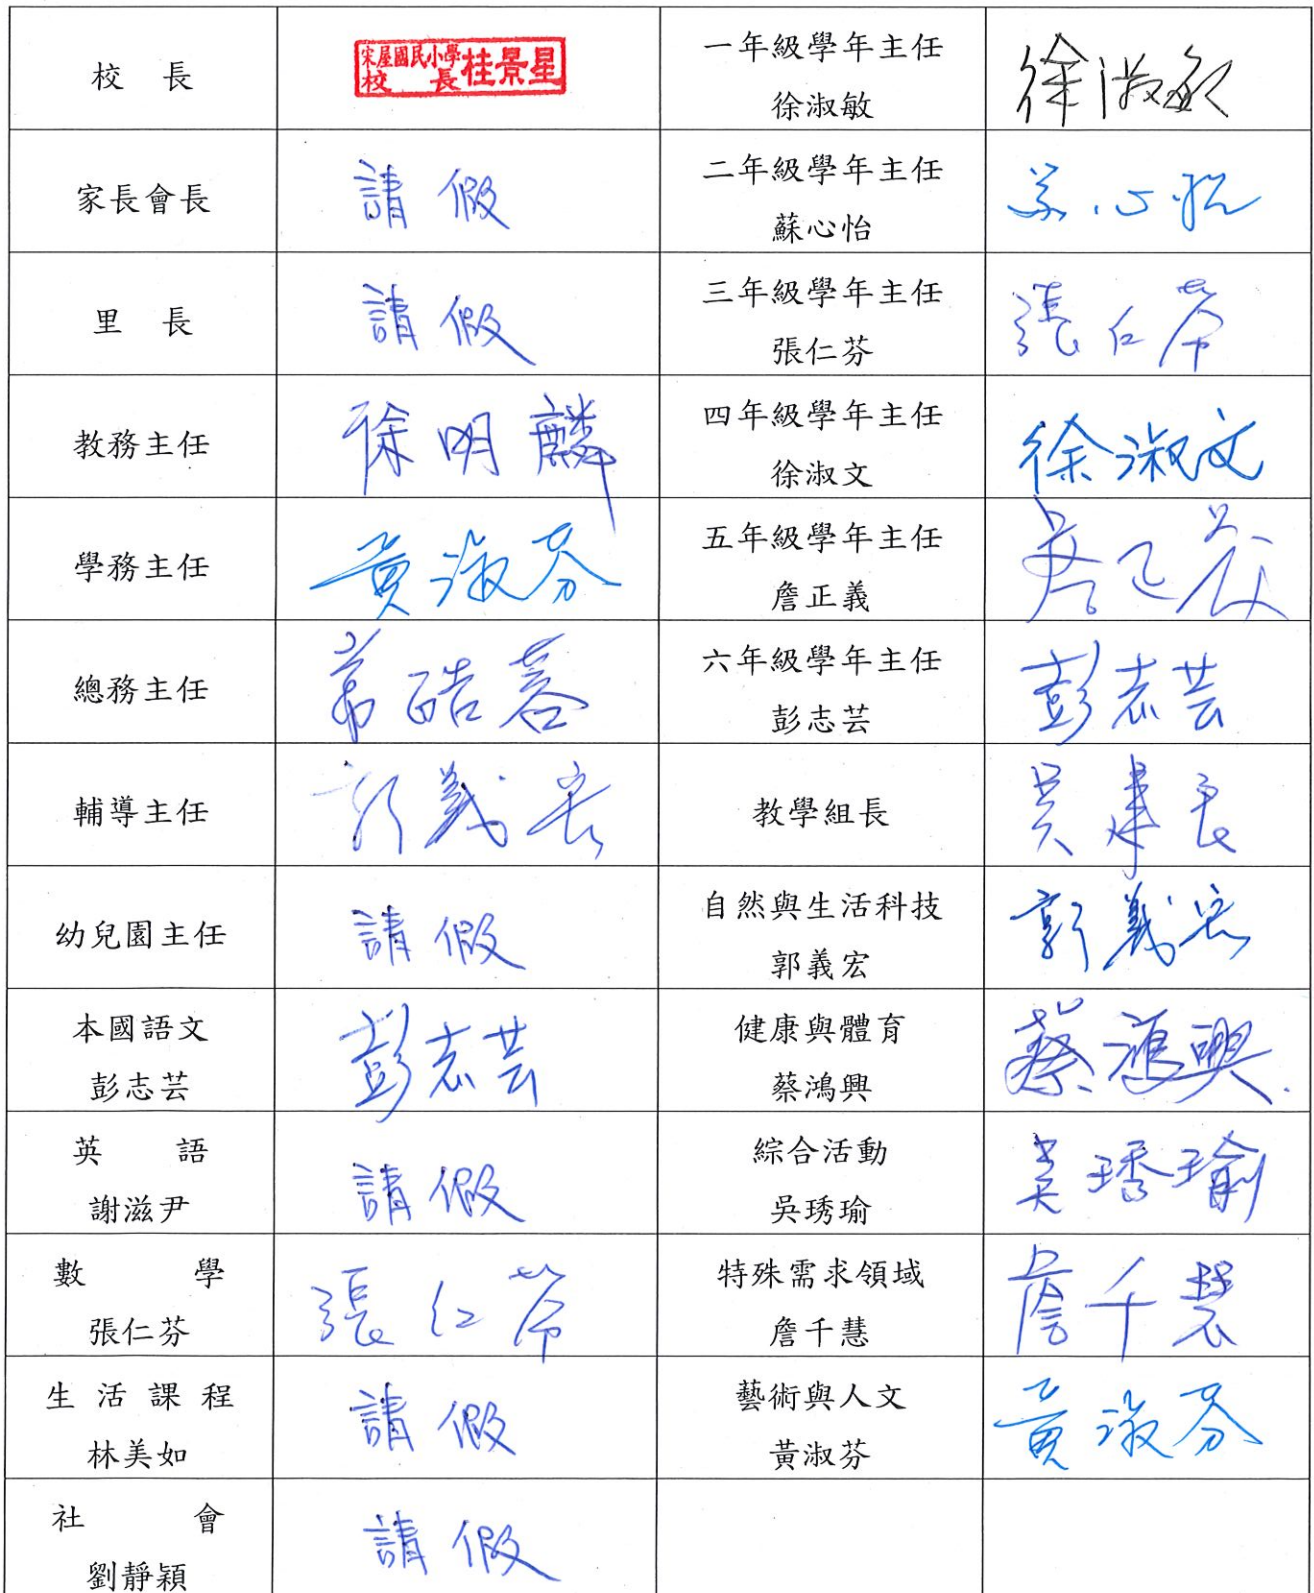 校 長
宋屋國民小學
校 長 桂景星
一年級學年主任
徐淑敏
徐淑敏
家長會長
請假
二年級學年主任
蘇心怡
心怡
里 長
請假
三年級學年主任
張仁芬
張仁芬
教務主任
徐明麟
四年級學年主任
徐淑文
徐淑文
學務主任
黃淑芬
五年級學年主任
詹正義
詹正義
總務主任
六年級學年主任
彭志芸
彭志芸
輔導主任
郭義宏
教學組長
吳建
幼兒園主任
請假
自然與生活科技
郭義宏
郭義宏
本國語文
彭志芸
彭志芸
健康與體育
蔡鴻興
蔡鴻興
英 語
謝滋尹
請假
綜合活動
吳琇瑜
吳琇瑜
數 學
張仁芬
張仁芬
特殊需求領域
詹千慧
詹千慧
生活課程
林美如
請假
藝術與人文
黃淑芬
黃淑芬
社 會
劉靜穎
請假